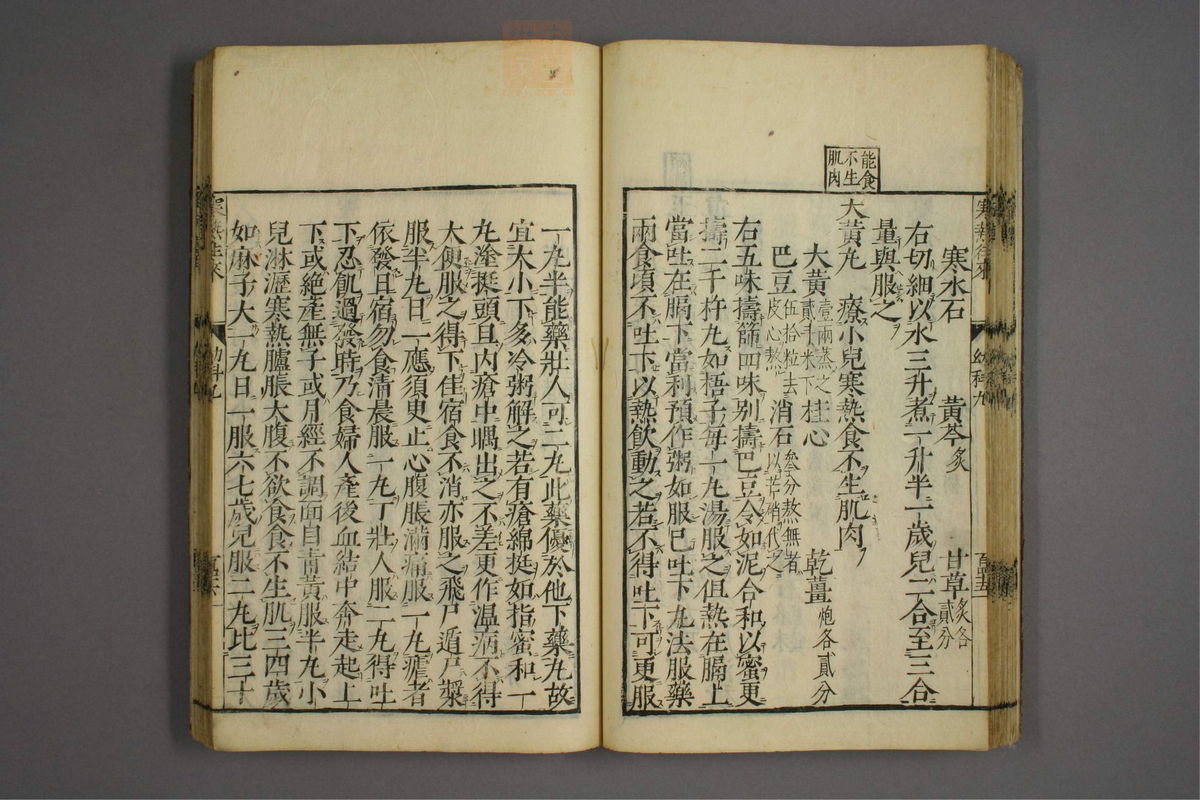 能食
不生
肌肉
寒水石 黄芩炙 甘草炙各貳分
右切細以水三升煮一升半一歲兒二合至三合
量與服之
大黃丸 療小兒寒熱食不生肌肉
大黃壹兩蒸之貳升米下 桂心 乾薑炮各貳分
巴豆伍拾粒去皮心熬 消石叄分熬無者以芒硝代之
右五味擣篩四味别擣巴豆令如泥合和以蜜更
擣二千杵丸如梧子每一丸湯服之但熱在膈上
當吐在膈下當利預作粥如服巴吐下丸法服藥
兩食頃不吐下以熱飲動之若不得吐下可更服
一丸半能藥壯人可二丸此藥優於他下藥丸故
宜大小下多冷粥解之若有瘡綿挺如指蜜和一
丸塗挺頭且内瘡中嗎出之不差更作溫病不得
大便服之得下佳宿食不消亦服之飛尸遁尸漿
服半丸日一應須更止心腹脹滿痛服一丸瘧者
依發日宿勿食清晨服一丸丁壯人服二丸得吐
下忍飢過發時乃食婦人產後血結中奔走起上
下或絶產無子或月經不調面目青黃服半丸小
兒淋瀝寒熱臚脹大腹不欲食食不生肌三四歲
如麻子大一丸日一服六七歲兒服二丸比三十